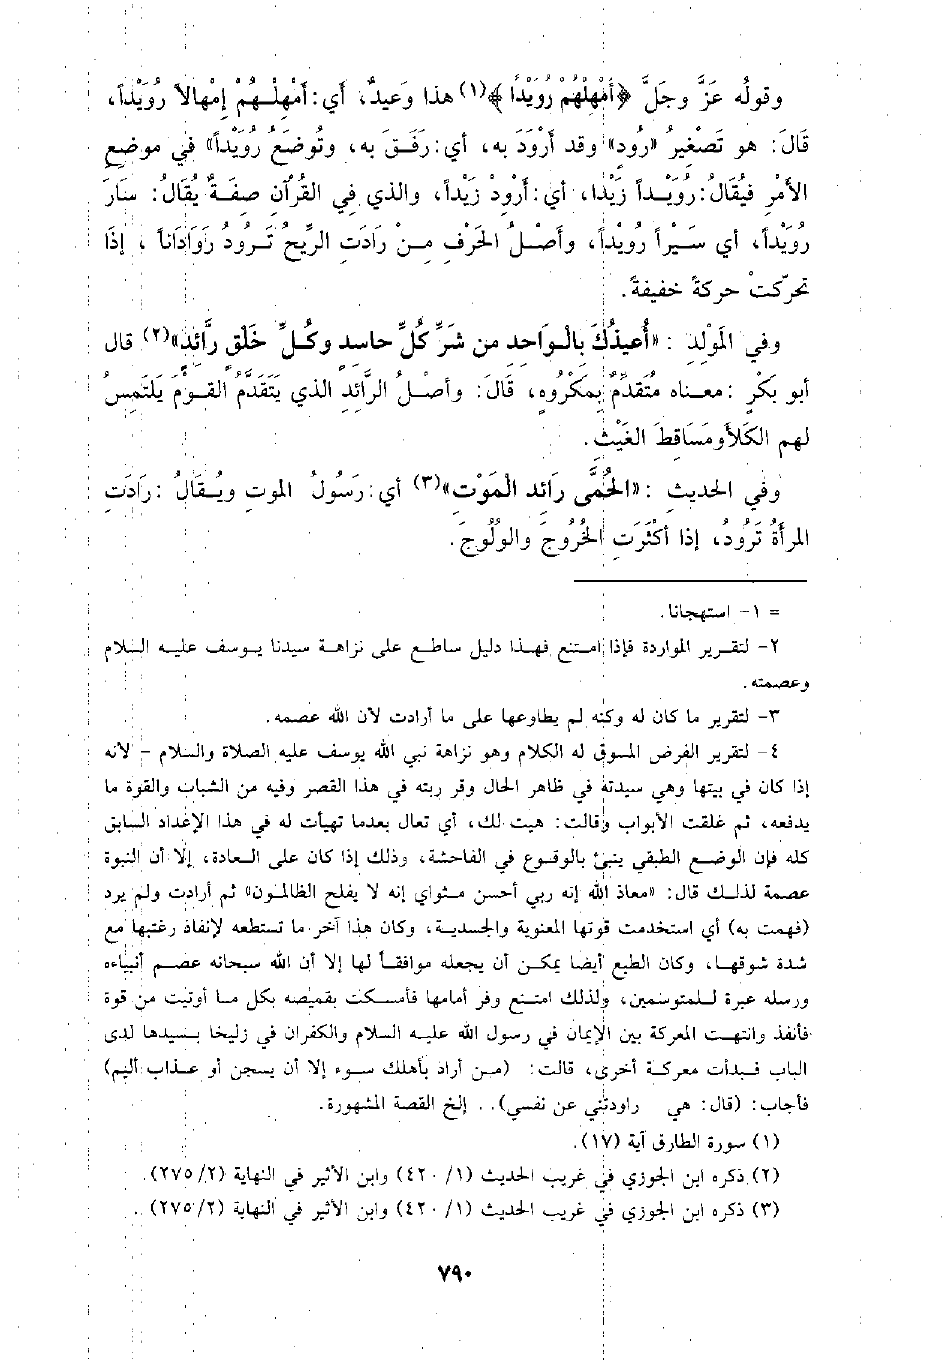 وقولُه عَزَّ وجَلَّ ﴿أَمْهِلْهُمْ رُوَيْدًا﴾(١) هذا وَعيدٌ، أَي: أَمْهِلْهُمْ إِمْهالاً رُوَيْداً،
قَالَ: هو تَصْغيرُ «رُود» وقد أَرْوَدَ به، أي: رَفَقَ به، وتُوضَعُ رُوَيْداً» في موضِعِ
الأَمْرِ فيُقَالُ: رُوَيْداً زَيْدا، أي: أَرْوِدْ زَيْداً، والذي في القُرْآنِ صفَةٌ يُقَالُ: سَارَ
رُوَيْداً، أي سَيْراً رُوَيْداً، وأَصْلُ الحَرْفِ مِنْ رَادَتِ الرِّيحُ تَرُودُ رَوَادَاناً ، إذَا
تحرّكتْ حركةً خفيفةً.
وفي المَوْلِدِ : «أُعيذُكَ بالوَاحد من شَرِّ كُلِّ حاسد وكُلِّ خَلْقٍ رَّائدٍ»(٢) قال
أبو بَكْرٍ : معناه مُتقَدِّمٌ بِمَكْرُوه، قَالَ: وأَصْلُ الرَّائدِ الذي يَتَقَدَّمُ القَوْمَ يَلتَمِسُ
لهم الكَلأَ ومَسَاقِطَ الغَيْثِ.
وفي الحديثِ : «الحُمَّى رَائد المَوْتِ»(٣) أي: رَسُولُ الموتِ ويُقَالُ : رَادَتِ
المرأةُ تَرُودُ، إذا أَكْثَرَتِ الخُرُوجَ والوُلُوجَ.
= ١- استهجانا.
٢- لتقرير المواردة فإذا امتنع فهذا دليل ساطع على نزاهة سيدنا يوسف عليه السلام
وعصمته.
٣- لتقرير ما كان له وكنه لم يطاوعها على ما أرادت لأن الله عصمه.
٤- لتقرير الفرض المسوق له الكلام وهو نزاهة نبي الله يوسف عليه الصلاة والسلام – لأنه
إذا كان في بيتها وهي سيدته في ظاهر الحال وقر ربته في هذا القصر وفيه من الشباب والقوة ما
يدفعه، ثم غلقت الأبواب وقالت: هيت لك، أي تعال بعدما تهيأت له في هذا الإغداد السابق
كله فإن الوضع الطبقي ينبئ بالوقوع في الفاحشة، وذلك إذا كان على العادة، إلا أن النبوة
عصمة لذلك قال: «معاذ الله إنه ربي أحسن مثواي إنه لا يفلح الظالمون» ثم أرادت ولم يرد
(فهمت به) أي استخدمت قوتها المعنوية والجسدية، وكان هذا آخر ما تستطعه لإنفاذ رغبتها مع
شدة شوقها، وكان الطبع أيضا يمكن أن يجعله موافقاً لها إلا أن الله سبحانه عصم أنبياءه
ورسله عبرة للمتوسمين، ولذلك امتنع وفر أمامها فأمسكت بقميصه بكل ما أوتيت من قوة
فأنفذ وانتهت المعركة بين الإيمان في رسول الله عليه السلام والكفران في زليخا بسيدها لدى
الباب فبدأت معركة أخرى، قالت: (من أراد بأهلك سوء إلا أن يسجن أو عذاب أليم)
فأجاب: (قال: هي راودتني عن نفسي).. إلخ القصة المشهورة.
(١) سورة الطارق آية (١٧).
(٢) ذكره ابن الجوزي في غريب الحديث (٤٢٠/١) وابن الأثير في النهاية (٢٧٥/٢).
(٣) ذكره ابن الجوزي في غريب الحديث (٤٢٠/١) وابن الأثير في النهاية (٢٧٥/٢) .
٧٩٠